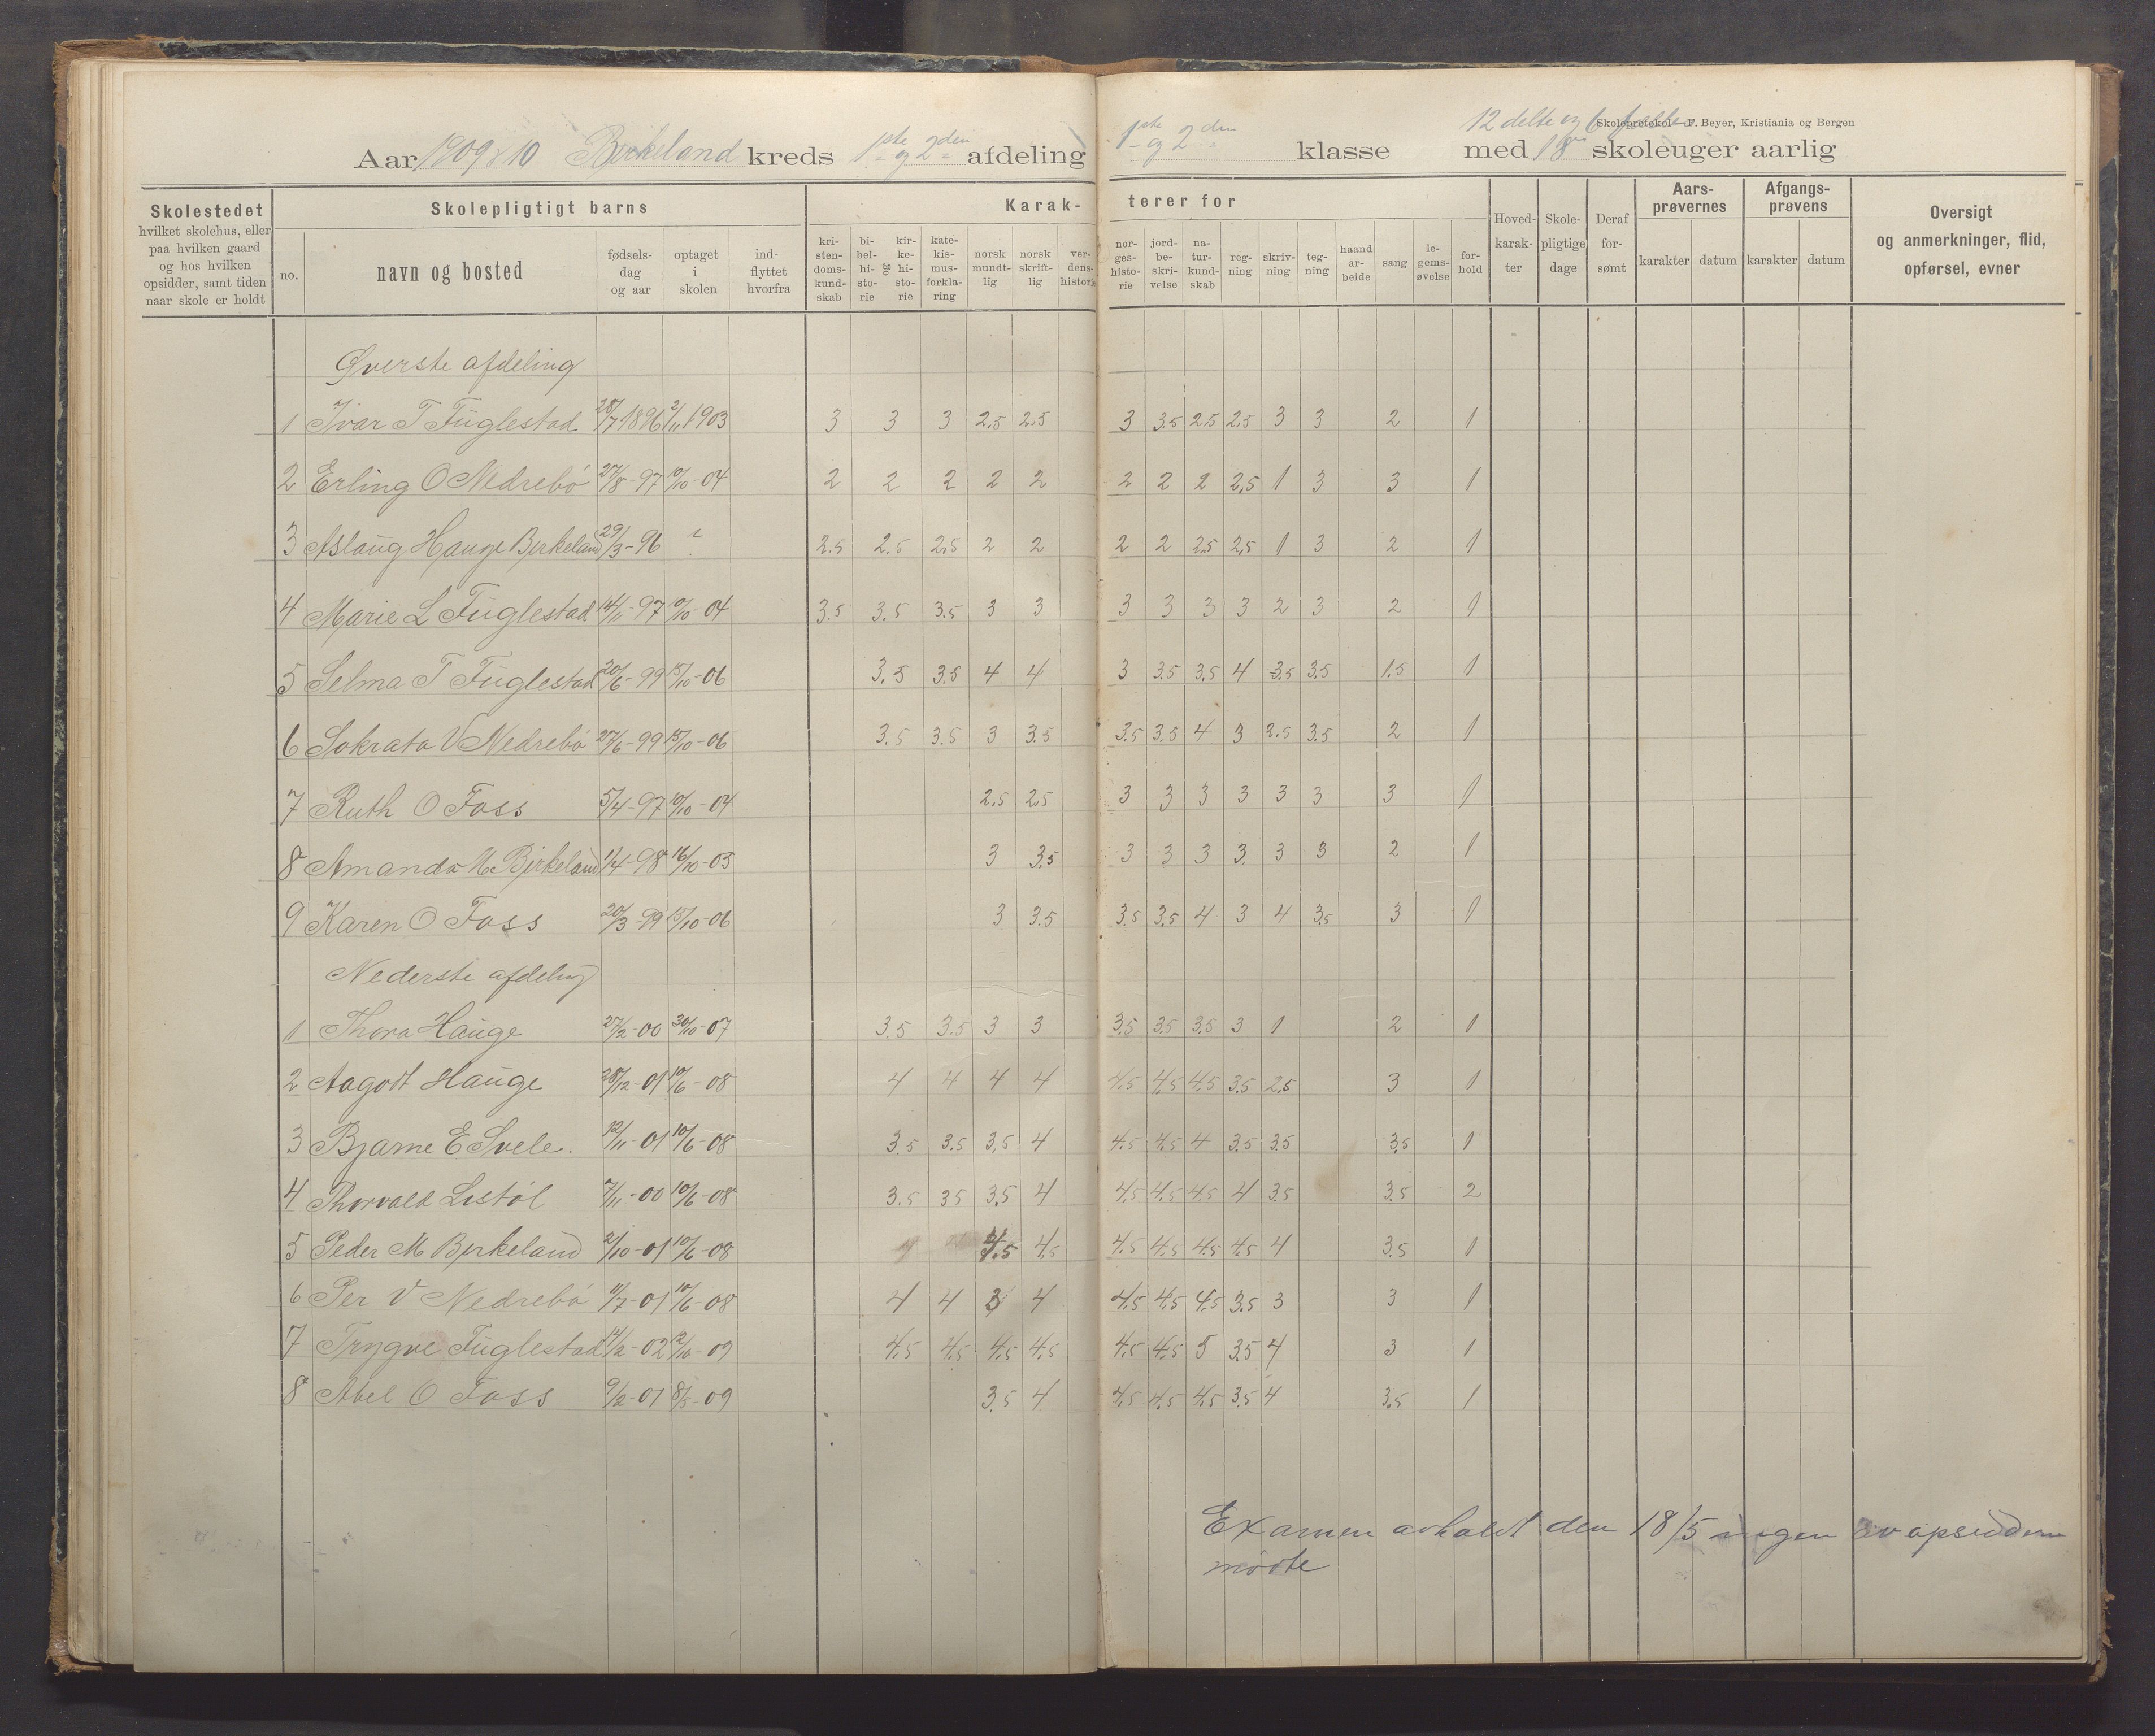 12 delte og 6 fælles
Skoleprotokol — F. Beyer, Kristiania og Bergen
Aar 1909 & 10 Birkeland kreds 1ste og 2den afdeling 1ste og 2den klasse med 18 skoleuger aarlig
Skolestedet hvilket skolehus, eller paa hvilken gaard og hos hvilken opsidder, samt tiden naar skole er holdt
Skolepligtigt barns
no. navn og bosted fødsels-dag og aar optaget i skolen ind-flyttet hvorfra
Karak- terer for
kri-sten-doms-kund-skab bi-bel-hi-sto-rie og kir-ke-hi-sto-rie kate-kis-mus-forkla-ring norsk mundt-lig norsk skrift-lig ver-dens-historie nor-ges-histo-rie jord-be-skri-velse na-tur-kund-skab reg-ning skriv-ning teg-ning haand ar-beide sang le-gems-øvelse for-hold
Hoved-karak-ter Skole-pligtige dage Deraf for-sømt
Aars-prøvernes karakter datum
Afgangs-prøvens karakter datum
Oversigt og anmerkninger, flid, opførsel, evner
Øverste afdeling
1 Ivar T Fuglestad 28/7 1896 2/11 1903 3 3 3 2,5 2,5 3 3.5 2.5 2,5 3 3 2 1
2 Erling O Nedrebø 27/8-97 10/10-04 2 2 2 2 2 2 2 2 2,5 1 3 3 1
3 Aslaug Hauge Birkeland 29/3-96 ? 2.5 2.5 2,5 2 2 2 2 2,5 2,5 1 3 2 1
4 Marie L Fuglestad 14/11-97 10/10-04 3.5 3.5 3.5 3 3 3 3 3 3 2 3 2 1
5 Selma T Fuglestad 20/6-99 15/10-06 3.5 3.5 4 4 3 3.5 3,5 4 3.5 3.5 1.5 1
6 Sokrata V Nedrebø 27/6-99 15/10-06 3.5 3.5 3 3.5 3.5 3.5 4 3 2.5 3.5 2 1
7 Ruth O Foss 5/4-97 10/10-04 2,5 2,5 3 3 3 3 3 3 3 1
8 Amanda M Birkeland 1/4-98 16/10-05 3 3.5 3 3 3 3 3 3 2 1
9 Karen O Foss 20/3-99 15/10-06 3 3.5 3.5 3.5 4 3 4 3,5 3 1
Nederste afdeling
1 Thora Hauge 27/2-00 30/10-07 3.5 3.5 3 3 3.5 3.5 3.5 3 1 2 1
2 Aagodt Hauge 28/12-01 10/6-08 4 4 4 4 4.5 4.5 4.5 3.5 2,5 3 1
3 Bjarne E Svele. 12/11-01 10/6-08 3.5 3.5 3,5 4 4.5 4.5 4 3.5 3.5 3,5 1
4 Thorvald Listøl 7/11-00 10/6-08 3.5 35 3.5 4 4.5 4.5 4.5 4 3.5 3.5 2
5 Peder M Birkeland 2/10-01 10/6-08 4.5 4.5 4.5 4.5 4.5 4.5 4 3.5 1
6 Per V Nedrebø 11/7-01 10/6-08 4 4 3 4 4.5 4.5 4.5 3.5 3 3 1
7 Trygve Fuglestad 14/2-02 12/10-09 4.5 4.5 4.5 4.5 4.5 4.5 5 3.5 4 3 1
8 Abel O Foss 9/2-01 8/5-09 3.5 4 4.5 4.5 4.5 3.5 4 3.5 1
Examen avholdt den 18/5 ingen av opsidderne
mødte